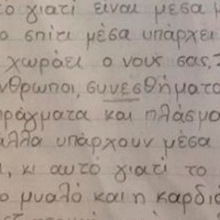 ο γιατί είναι μέσα μ
ο σπίτι μέσα υπάρχει
χωράει ο νους σας,
νθρωποι, συνεσθήματα
ράγματα και πλάσμα
άλλα υπάρχουν μέσα
, κι αυτό γιατί το
ο μυαλό και η καρδιά